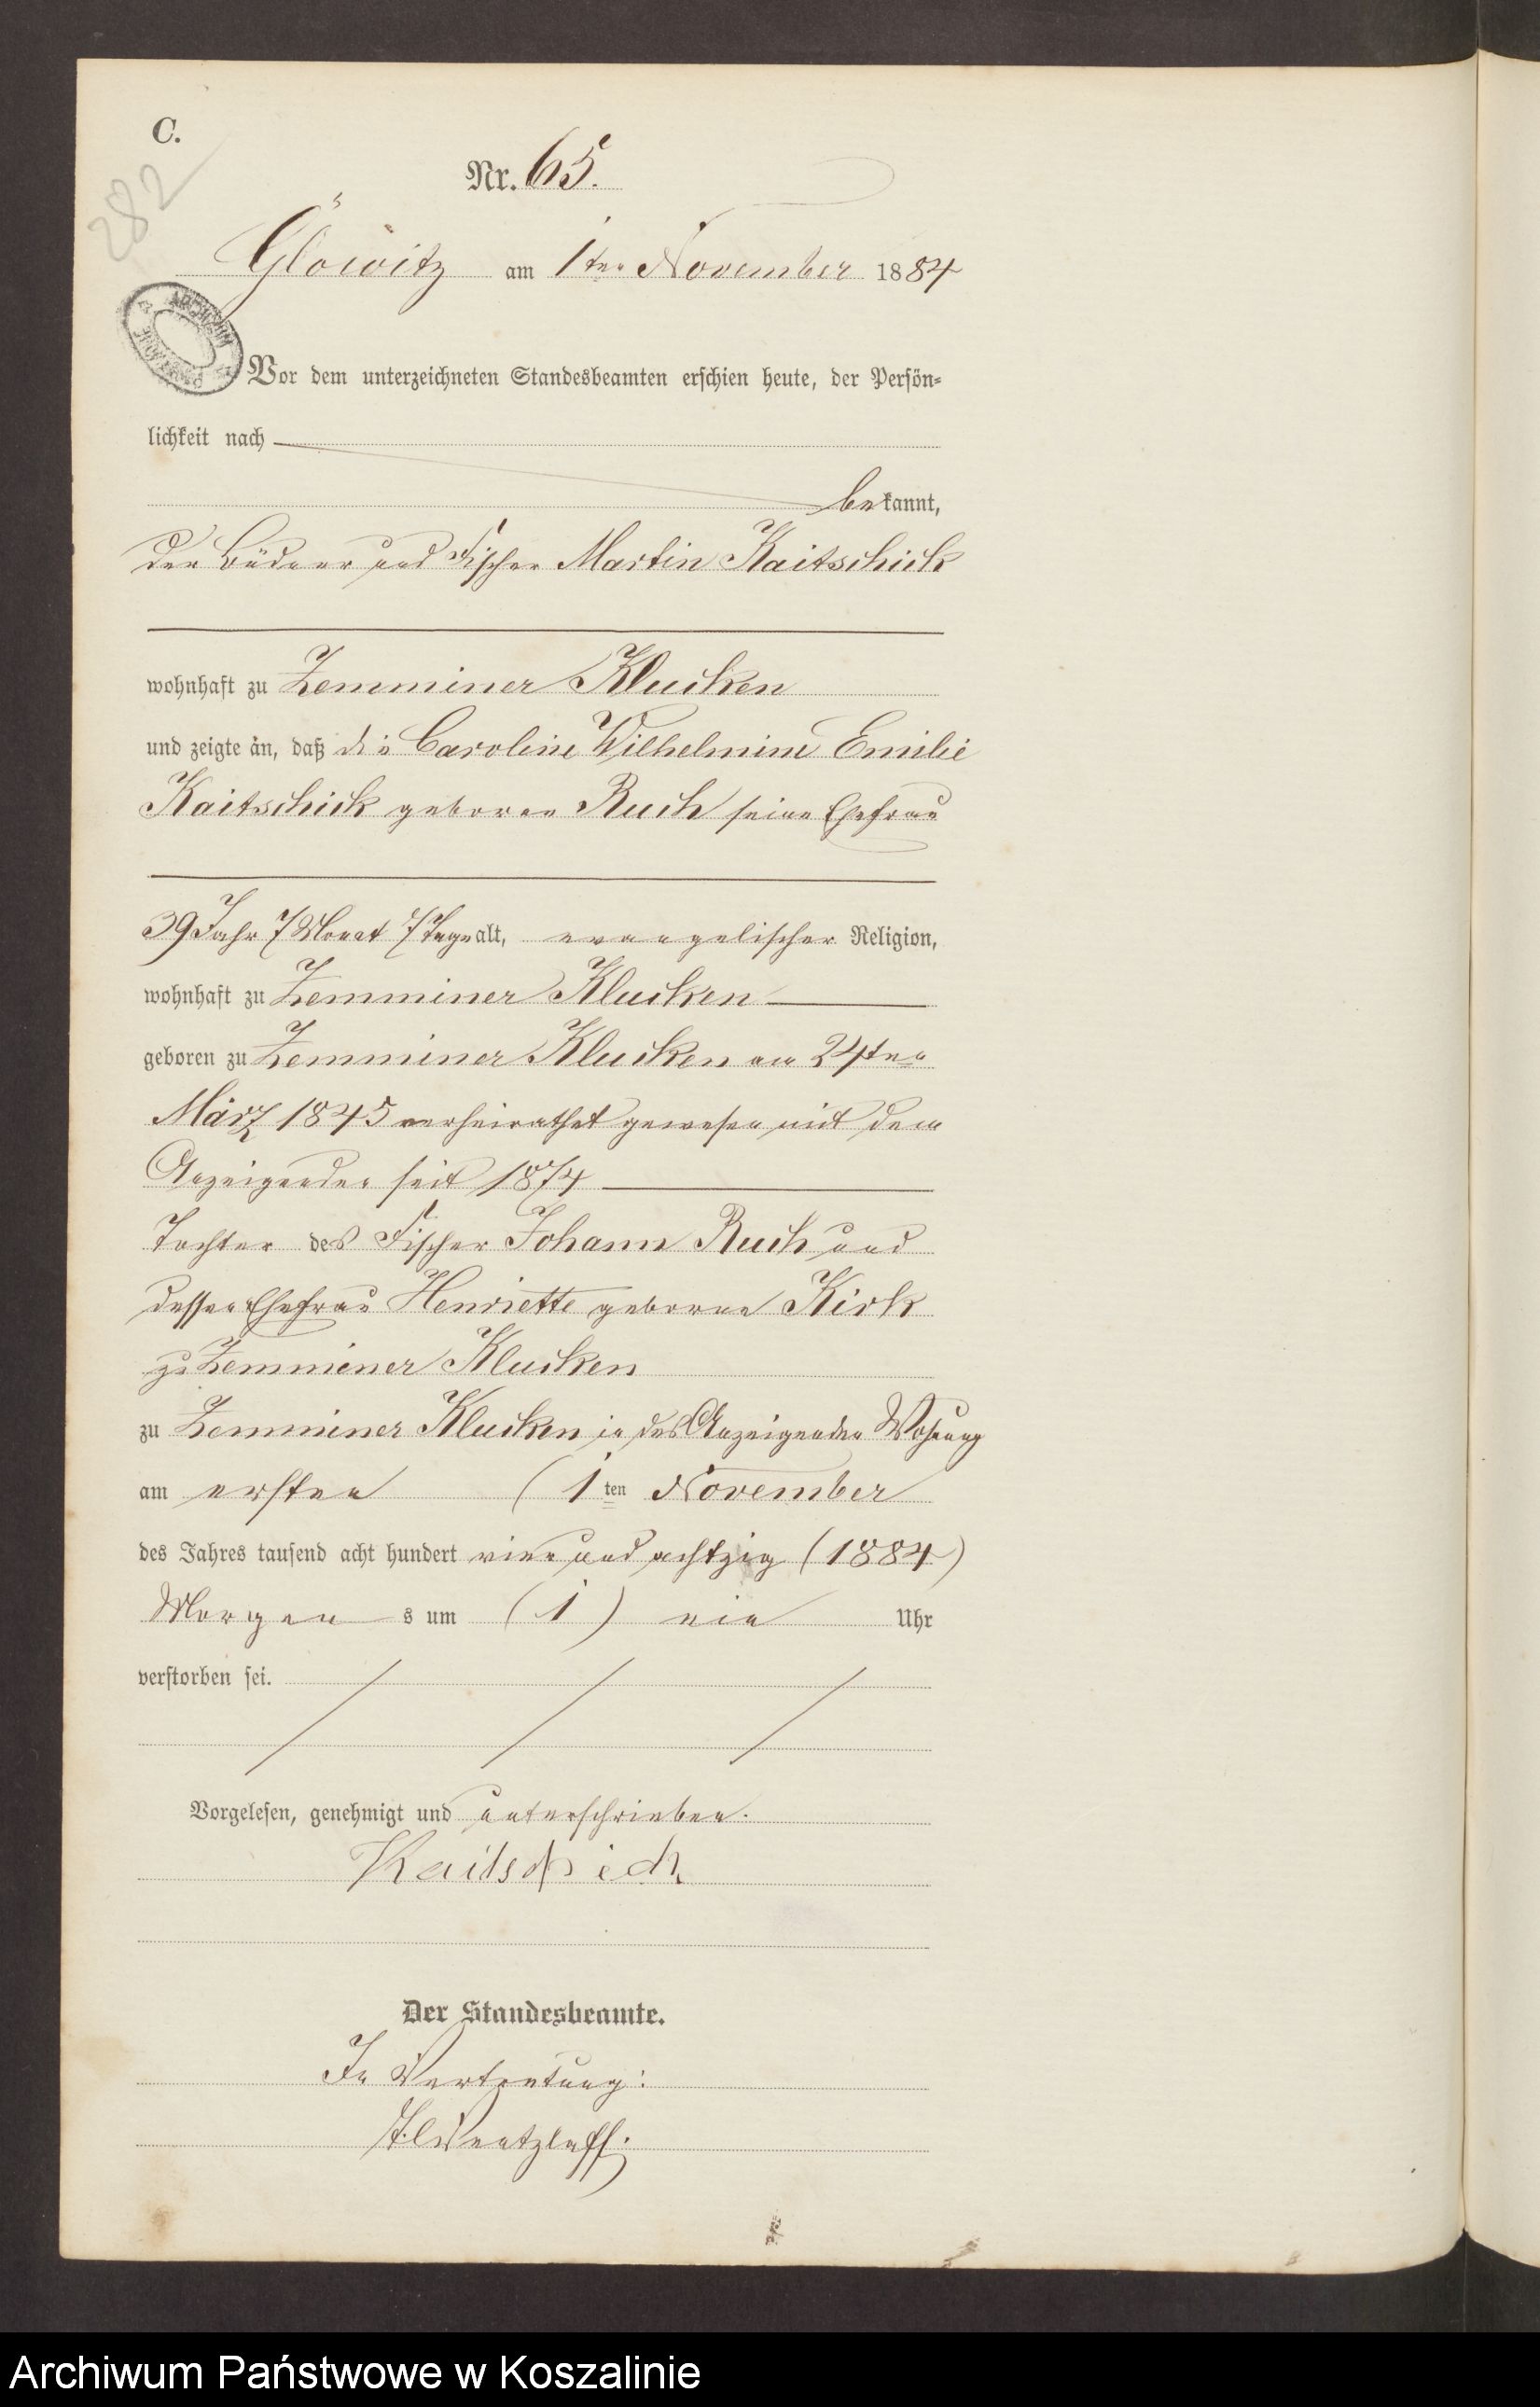 C.
282
Nr. 65.
Glowitz am 1ten November 1884
Vor dem unterzeichneten Standesbeamten erschien heute, der Persön-
lichkeit nach
bekannt,
der Büdner und Fischer Martin Kaitschick
wohnhaft zu Zemminer Klucken
und zeigte an, daß die Caroline Wilhelmine Emilie
Kaitschick geboren Ruch seine Ehefrau
39 Jahr 7 Monat 7 Tage alt, evangelischer Religion,
wohnhaft zu Zemminer Klucken
geboren zu Zemminer Klucken am 24ten
März 1845 verheirathet gewesen mit dem
Anzeigenden seit 1874
Tochter des Fischer Johann Ruch und
dessen Ehefrau Henriette geborne Kirk
zu Zemminer Klucken
zu Zemminer Klucken in des Anzeigenden Wohnung
am ersten (1ten November
des Jahres tausend acht hundert vier und achtzig (1884)
Morgen s um (1) ein Uhr
verstorben sei.
Vorgelesen, genehmigt und unterschrieben.
Kaitschick
Der Standesbeamte.
In Vertretung:
Wentzlaff.
Archiwum Państwowe w Koszalinie